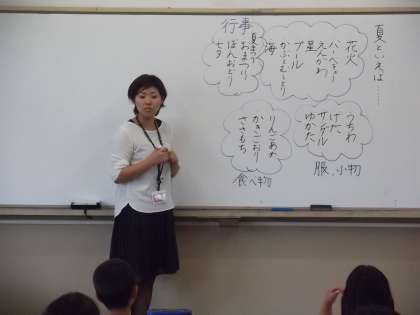 夏といえば……
花火
バーベキュー
えんがわ
星
プール
かぶとむしとり
海
行事
夏まつり
おまつり
ぼんおどり
七夕
うちわ
げた
サンダル
ゆかた
服、小物
りんごあめ
かきごおり
ささもち
食べ物